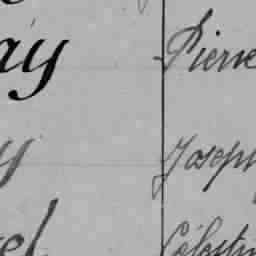 ay Pierre
y Joseph
el Célestin